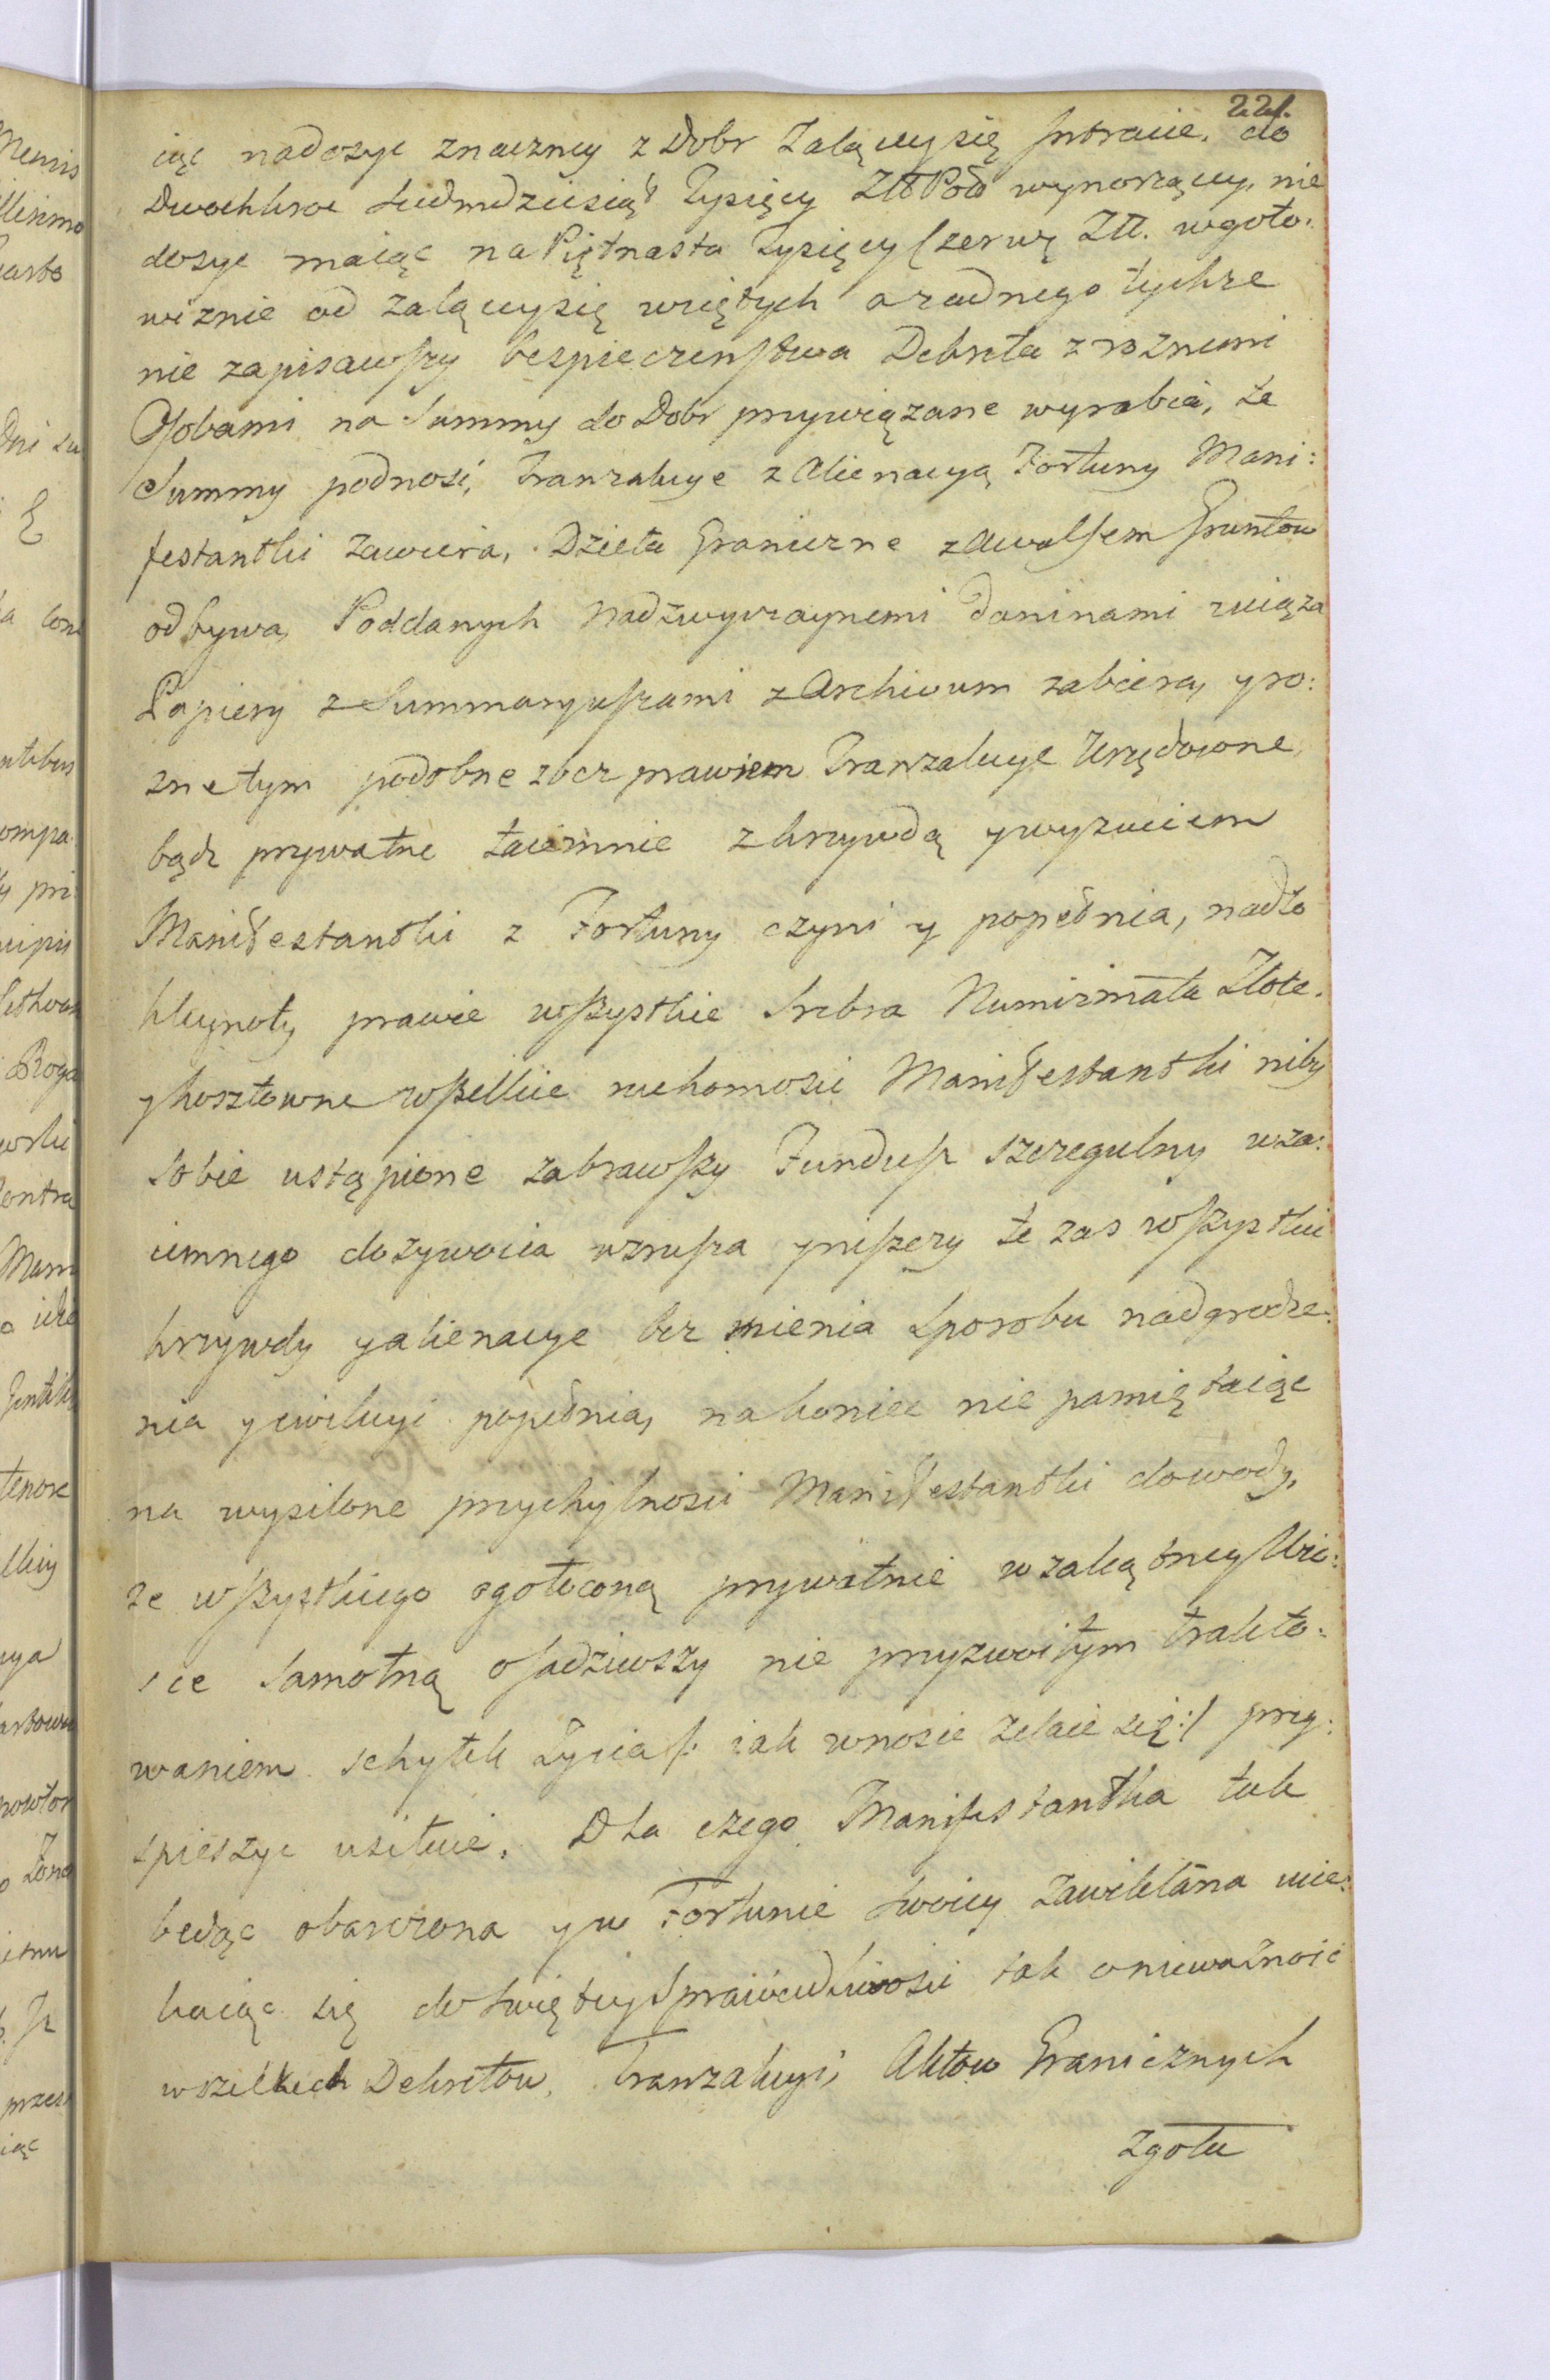 221.
iąc nadosyc znaczney z Dobr Zalącey się Intracie, do
Dwochkroc siedmdziesiąt Tysięcy Zł Pol wynoszącey, nie
dosyc maiąc na Piętnasta Tysięcy Czerwą Złł. wgoto:
wiznie od zalącey się wziętych a zadnego tychze
nie zapisawszy bespieczenstwa Dekreta z roznemi
Osobami na Summy do Dobr przywiązane wyrabia, te
Summy podnosi, Tranzakcye z Alienacyą Fortuny Mani:
festantki zawiera, Dzieła Graniczne z Awulsem Gruntow
odbywa, Poddanych nadzwyczaynemi daninami zciąza
Papiery z Summaryuszami z Archivum zabiera, y ro:
zne tym podobne z bezprawiem Tranzakcye Urzędowne,
bądz prywatne taiemnie z krzywdą y wyzuciem
Manifestantki z Fortuny czyni y popełnia, nadto
kleynoty prawie wszystkie Srebra Numizmata Złote.
y kosztowne wszelkie ruchomosci Manifestantki niby
sobie ustąpione zabrawszy Fundusz szczegulny wza:
iemnego dozywocia wzrusza y niszczy te zas wszystkie
krzywdy y alienacye bez mienia sposobu nadgrodze:
nia y ewikcyi popełnia, nakoniec nie pamiętaiąc
na wysilone przychylnosci Manifestantki dowody,
ze wszystkiego ogołoconą prywatnie w zakątney Wio:
sce samotną osadziwszy nie przyzwoitym trakto:
waniem schyłek zycia /: iak wnosic zdaie się :/ przy:
spieszyc usiłuie. Dla czego Manifestantka tak
będąc obarczona y w Fortunie swoiey zawikłana ucie:
kaiąc się do swiętey sprawiedliwosci tak o nieważność
wszelkich Dekretow, Tranzakcyi, Aktow Granicznych
zgoła